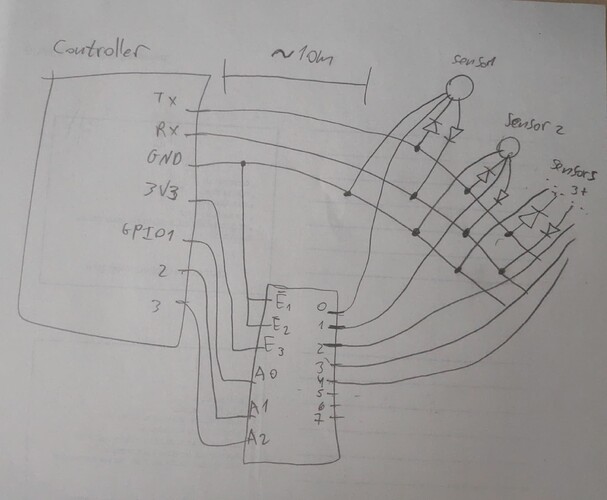 Controller
~10m
sensor
sensor 2
sensors
3+
Tx
Rx
GND
3V3
GPIO1
2
3
E̅1
E̅2
E3
A0
A1
A2
0
1
2
3
4
5
6
7